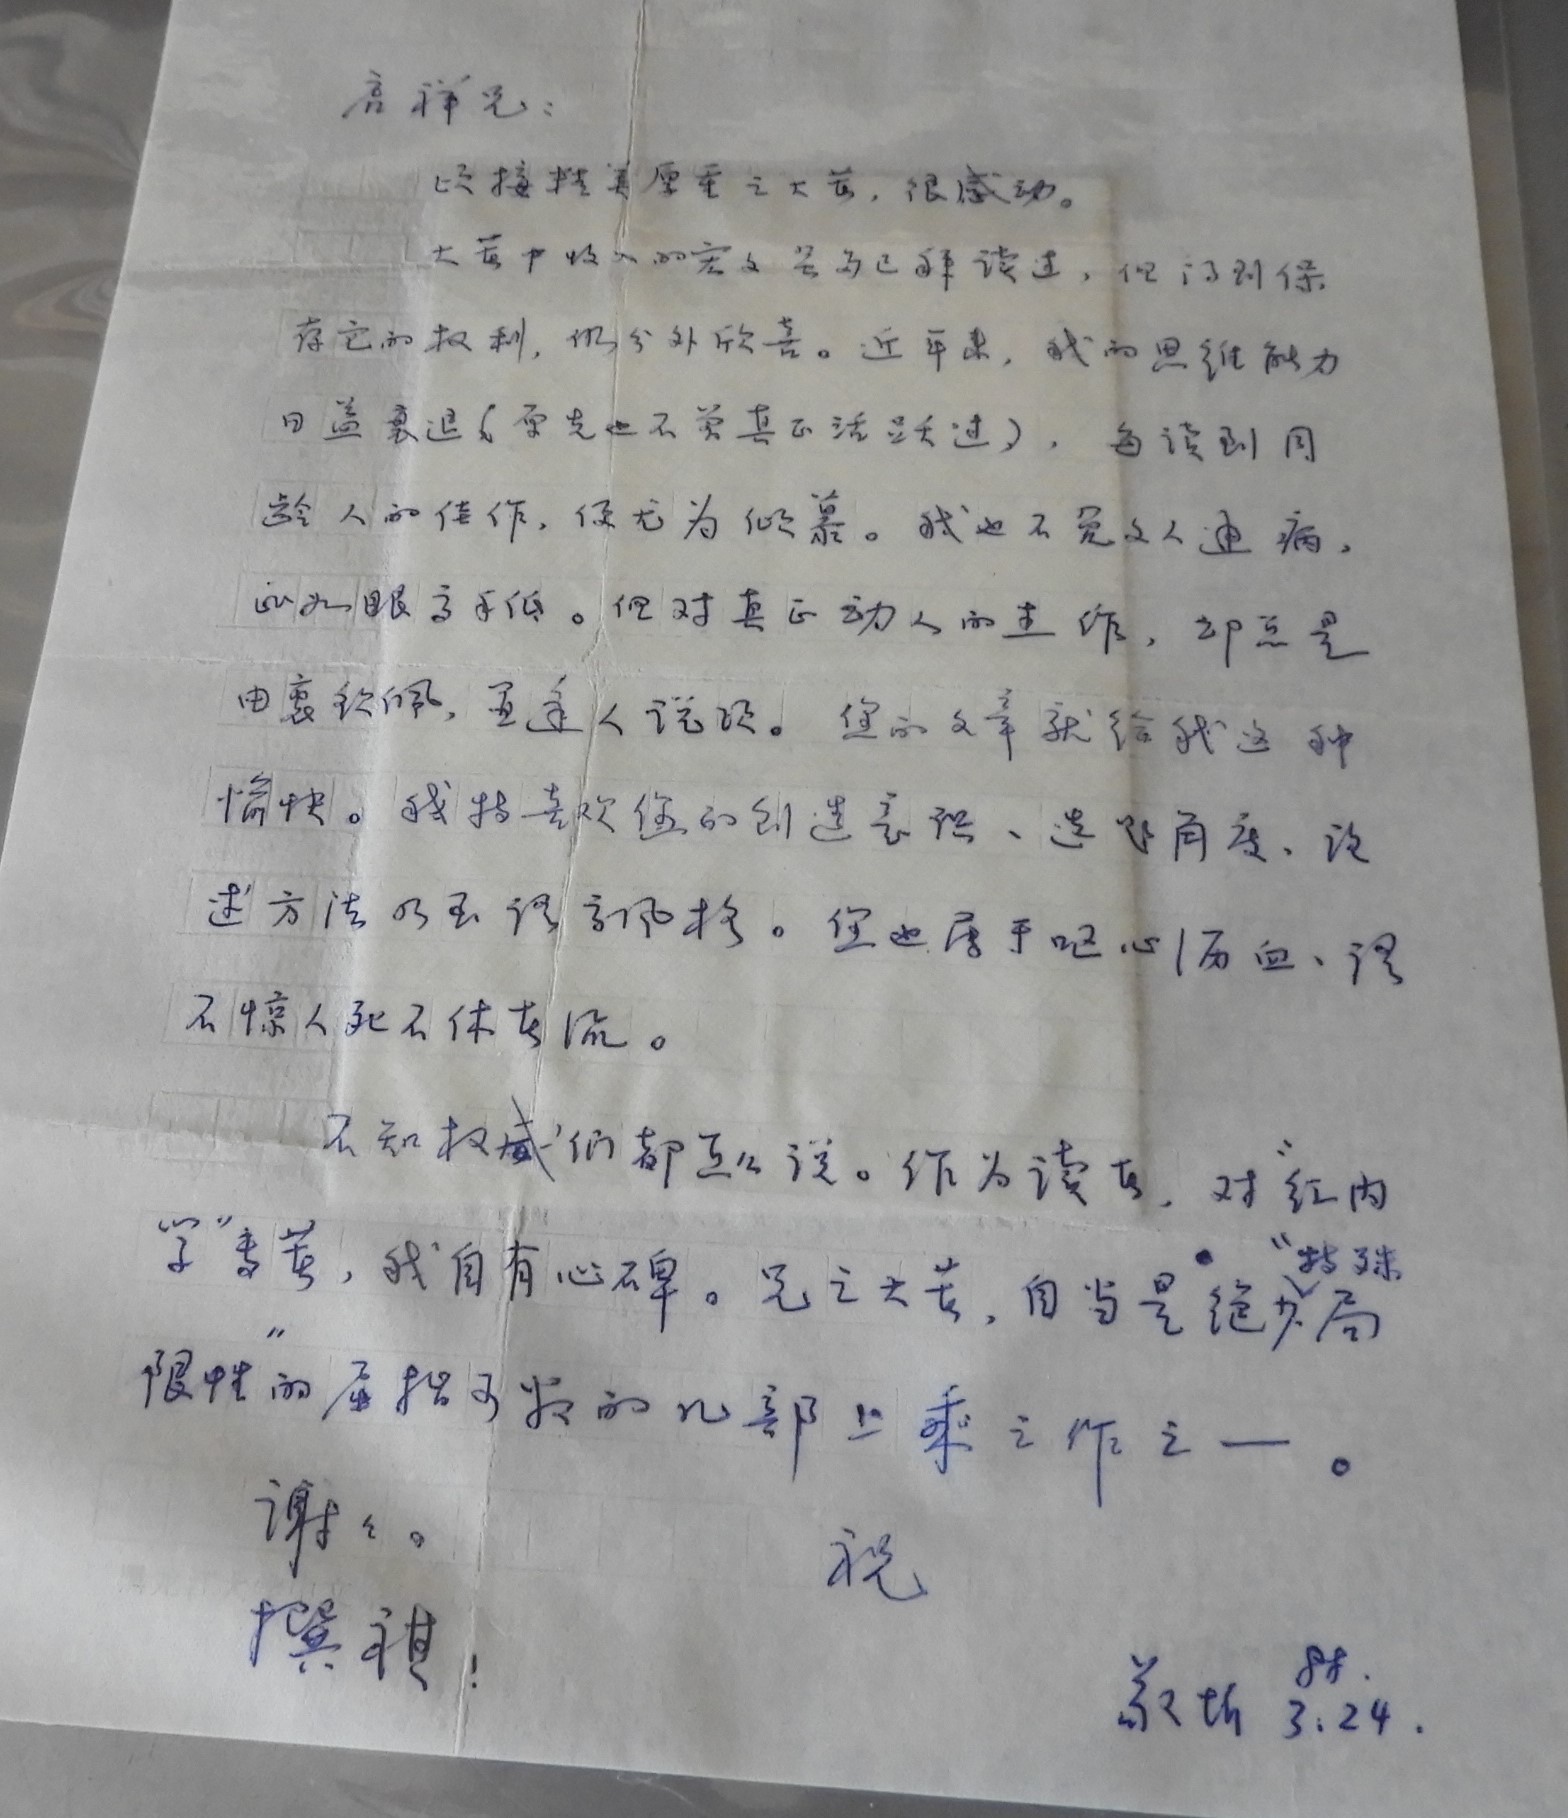 启祥兄：
顷接精美厚重之大著，很感动。
大著中收入的宏文虽多已拜读过，但得到保
存它的权利，仍分外欣喜。近年来，我的思维能力
日益衰退（原先也不曾真正活跃过），每读到同
龄人的佳作，便尤为倾慕。我也不免文人通病，
比如眼高手低。但对真正动人的末作，却总是
由衷钦佩，且逢人说项。您的文章就给我这种
愉快。我特喜欢您的创造意识、选题角度、论
述方法乃至语言风格。您也属于呕心沥血、语
不惊人死不休者流。
不知权威们都怎么说。作为读者，对“红内
学”专著，我自有心碑。兄之大著，自当是绝少“特殊局
限性”的屈指可数的几部上乘之作之一。
谢々。
祝
撰祺！
88.
3.24.